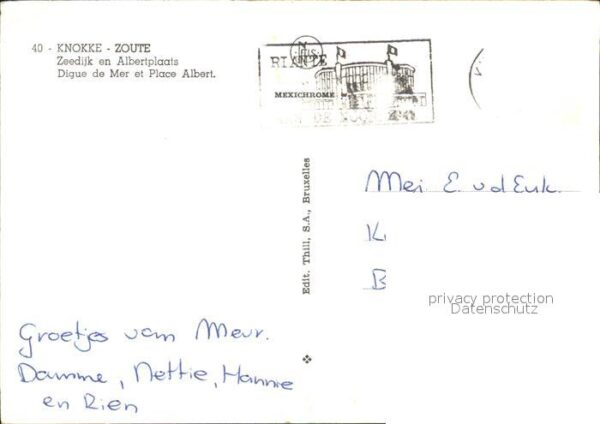 40 - KNOKKE - ZOUTE
Zeedijk en Albertplaats
Digue de Mer et Place Albert.
MEXICHROME
Edit. Thill, S.A., Bruxelles
Mej. E. v d Enk.
K
B
privacy protection
Datenschutz
Groetjes van Mevr.
Damme, Nettie, Hannie
en Rien